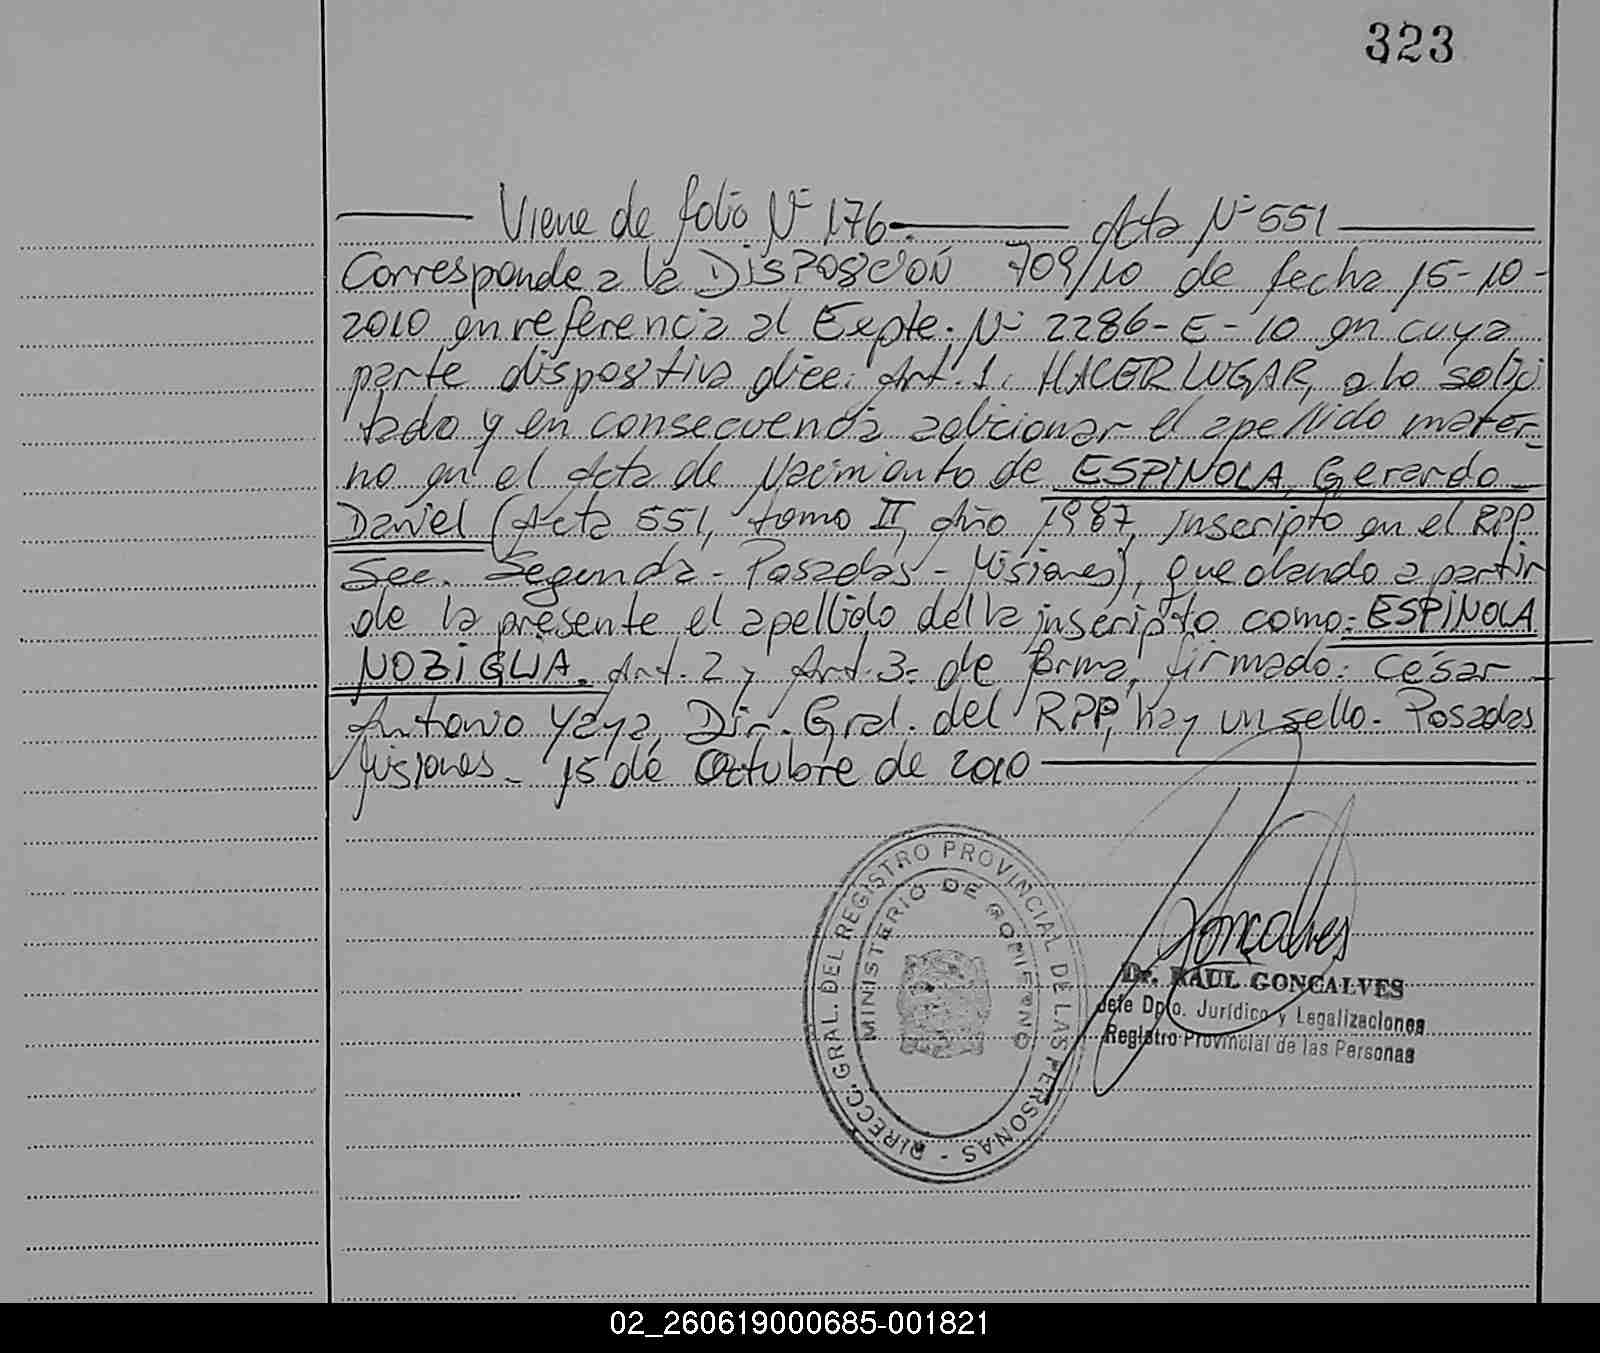 323
Viene de folio Nº 176. Acta Nº 551
Corresponde a la DISPOSICIÓN 709/10 de fecha 15-10-
2010 en referencia al Expte. Nº 2286-E-10 en cuya
parte dispositiva dice: Art. 1: HACER LUGAR, a lo solici
tado y en consecuencia adicionar el apellido mater-
no en el Acta de Nacimiento de ESPINOLA, Gerardo
Daniel (Acta 551, tomo II, Año 1987, inscripto en el RPP
Sec. Segunda - Posadas - Misiones), quedando a partir
de la presente el apellido del/la inscripto como: ESPINOLA
NOZIGLIA. Art. 2 y Art. 3: de forma, firmado: César
Antonio Yaya, Dir. Gral. del RPP, hay un sello. Posadas
Misiones - 15 de Octubre de 2010
DIRECC. GRAL. DEL REGISTRO PROVINCIAL DE LAS PERSONAS -
MINISTERIO DE GOBIERNO
Goncalves
Dr. RAUL GONCALVES
Jefe Dpto. Jurídico y Legalizaciones
Registro Provincial de las Personas
02_260619000685-001821